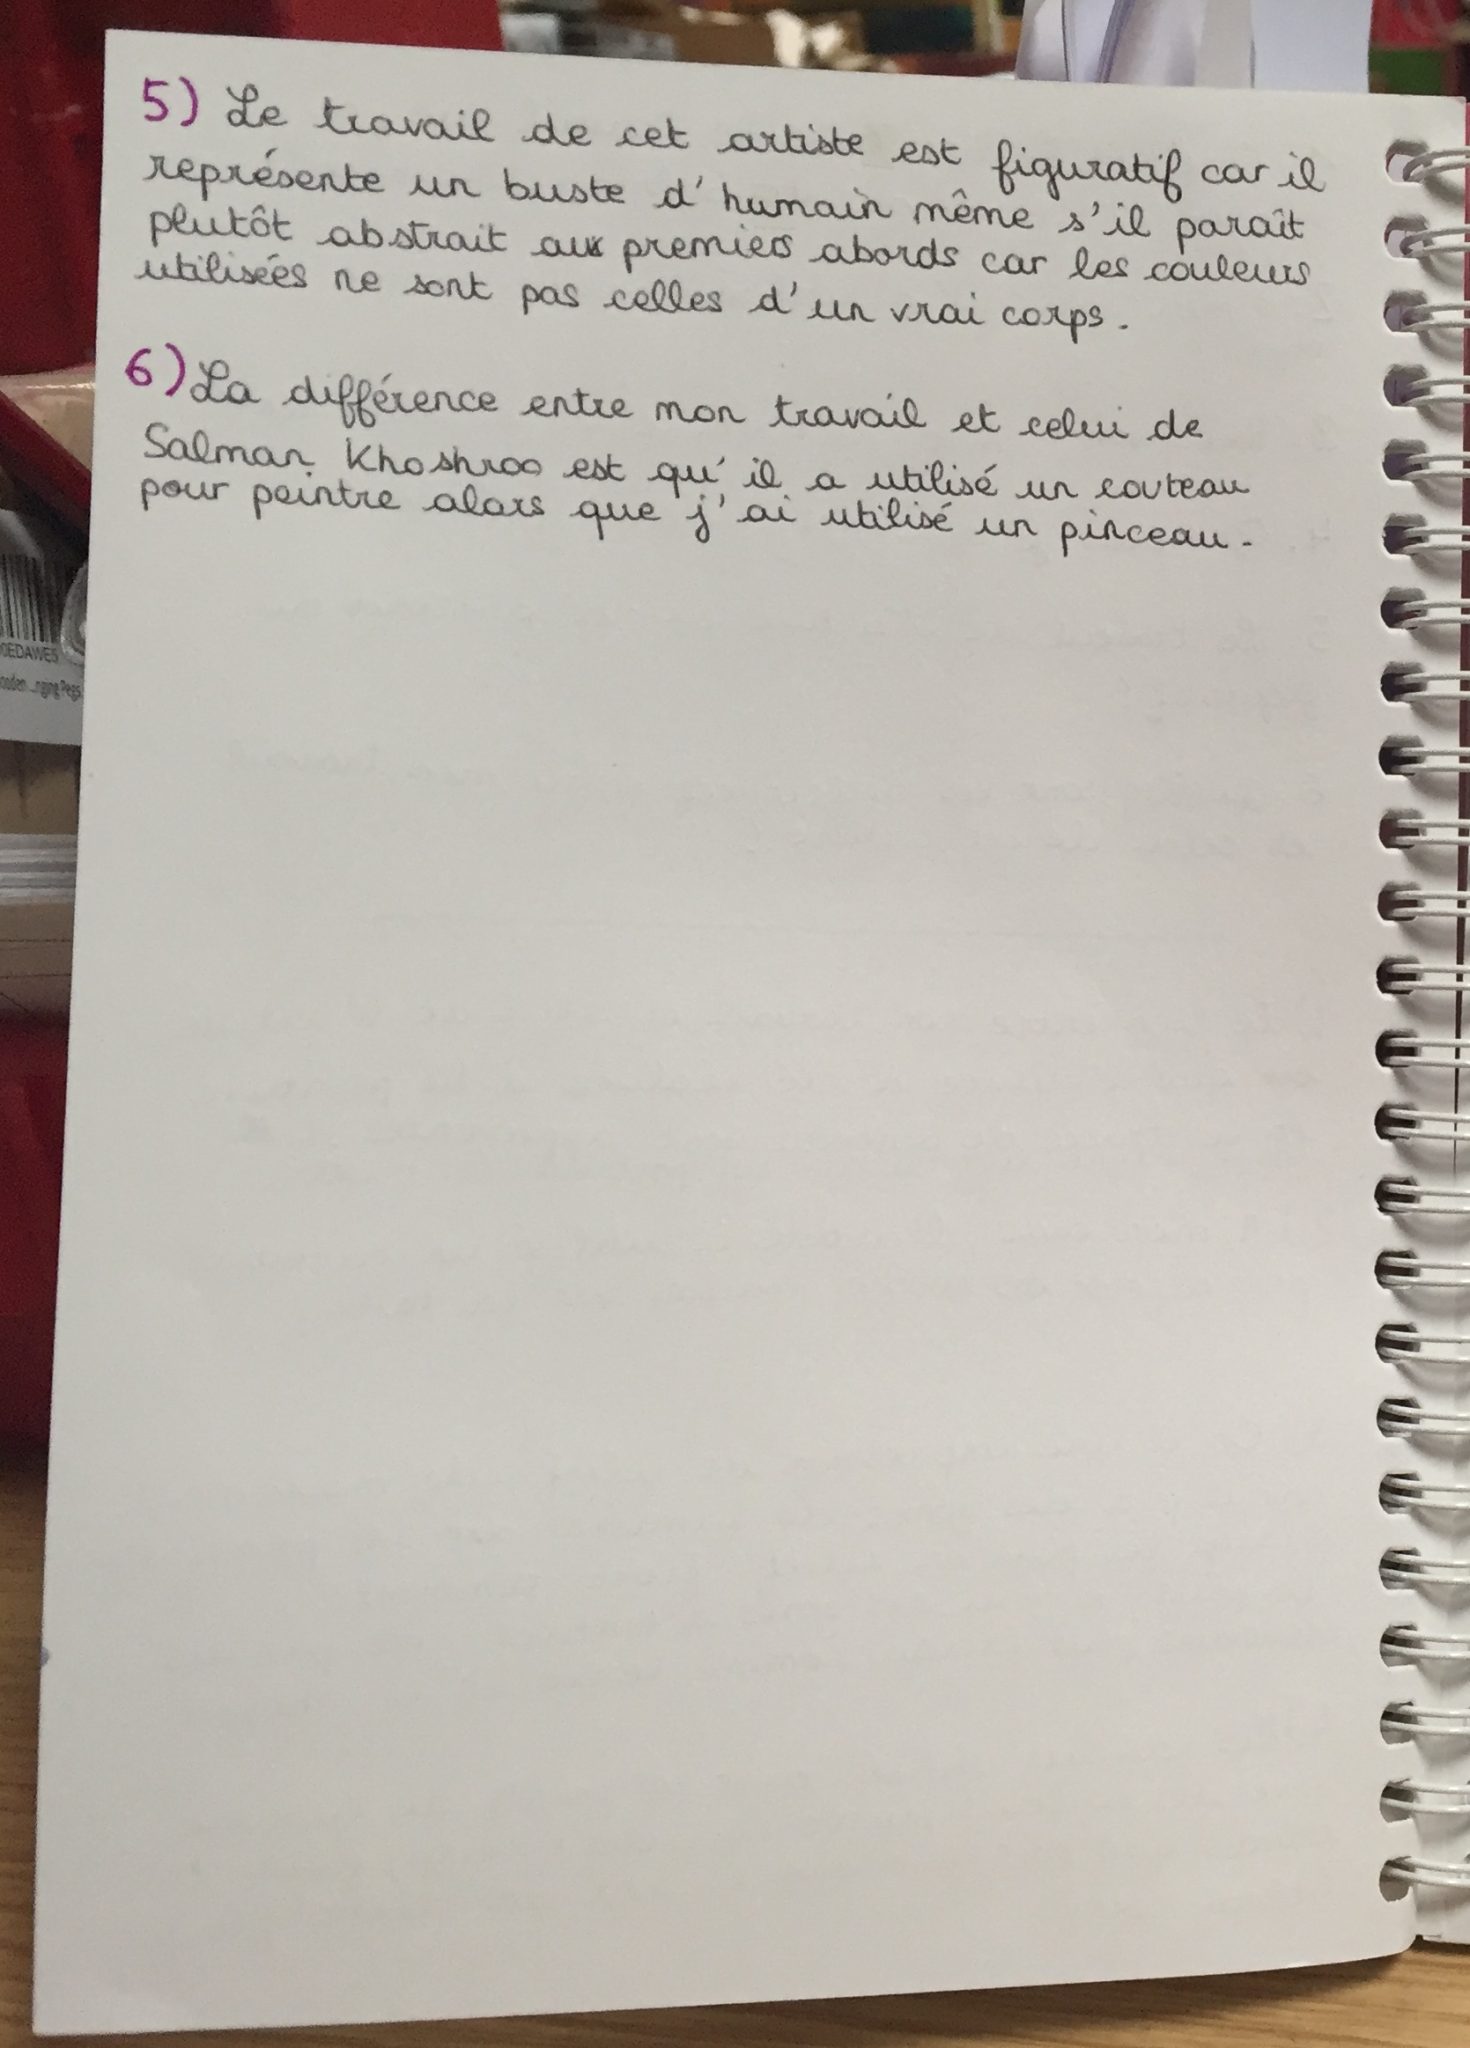 5) Le travail de cet artiste est figuratif car il
représente un buste d'humain même s'il paraît
plutôt abstrait aux premiers abords car les couleurs
utilisées ne sont pas celles d'un vrai corps.
6) La différence entre mon travail et celui de
Salman Khoshroo est qu'il a utilisé un couteau
pour peintre alors que j'ai utilisé un pinceau.
0EDAWE5
ooden ...nging Pegs